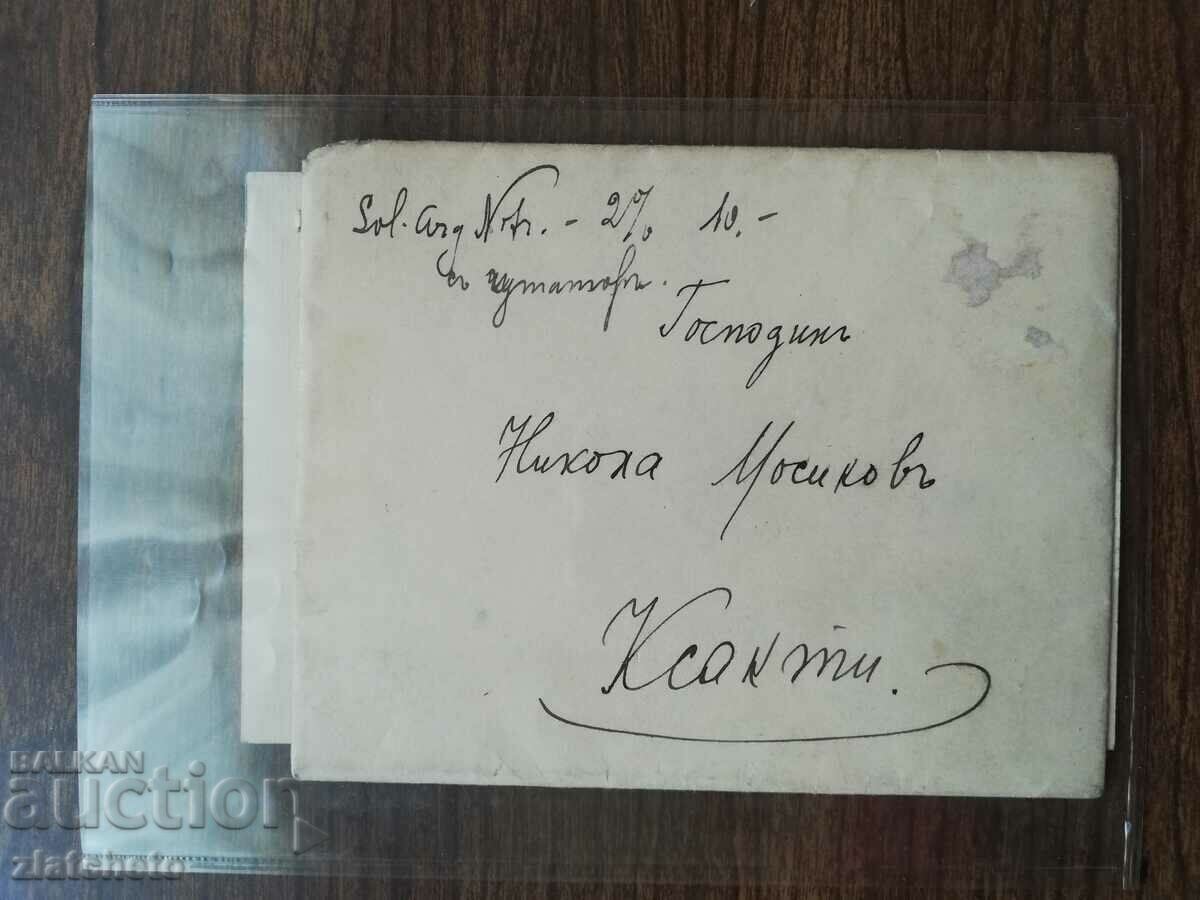 Sol. Arg Nitr. - 2% 10.-
съ
Господинъ
Никола Мосиновъ
Ксанти.
BALKAN
auction
zlatsheto